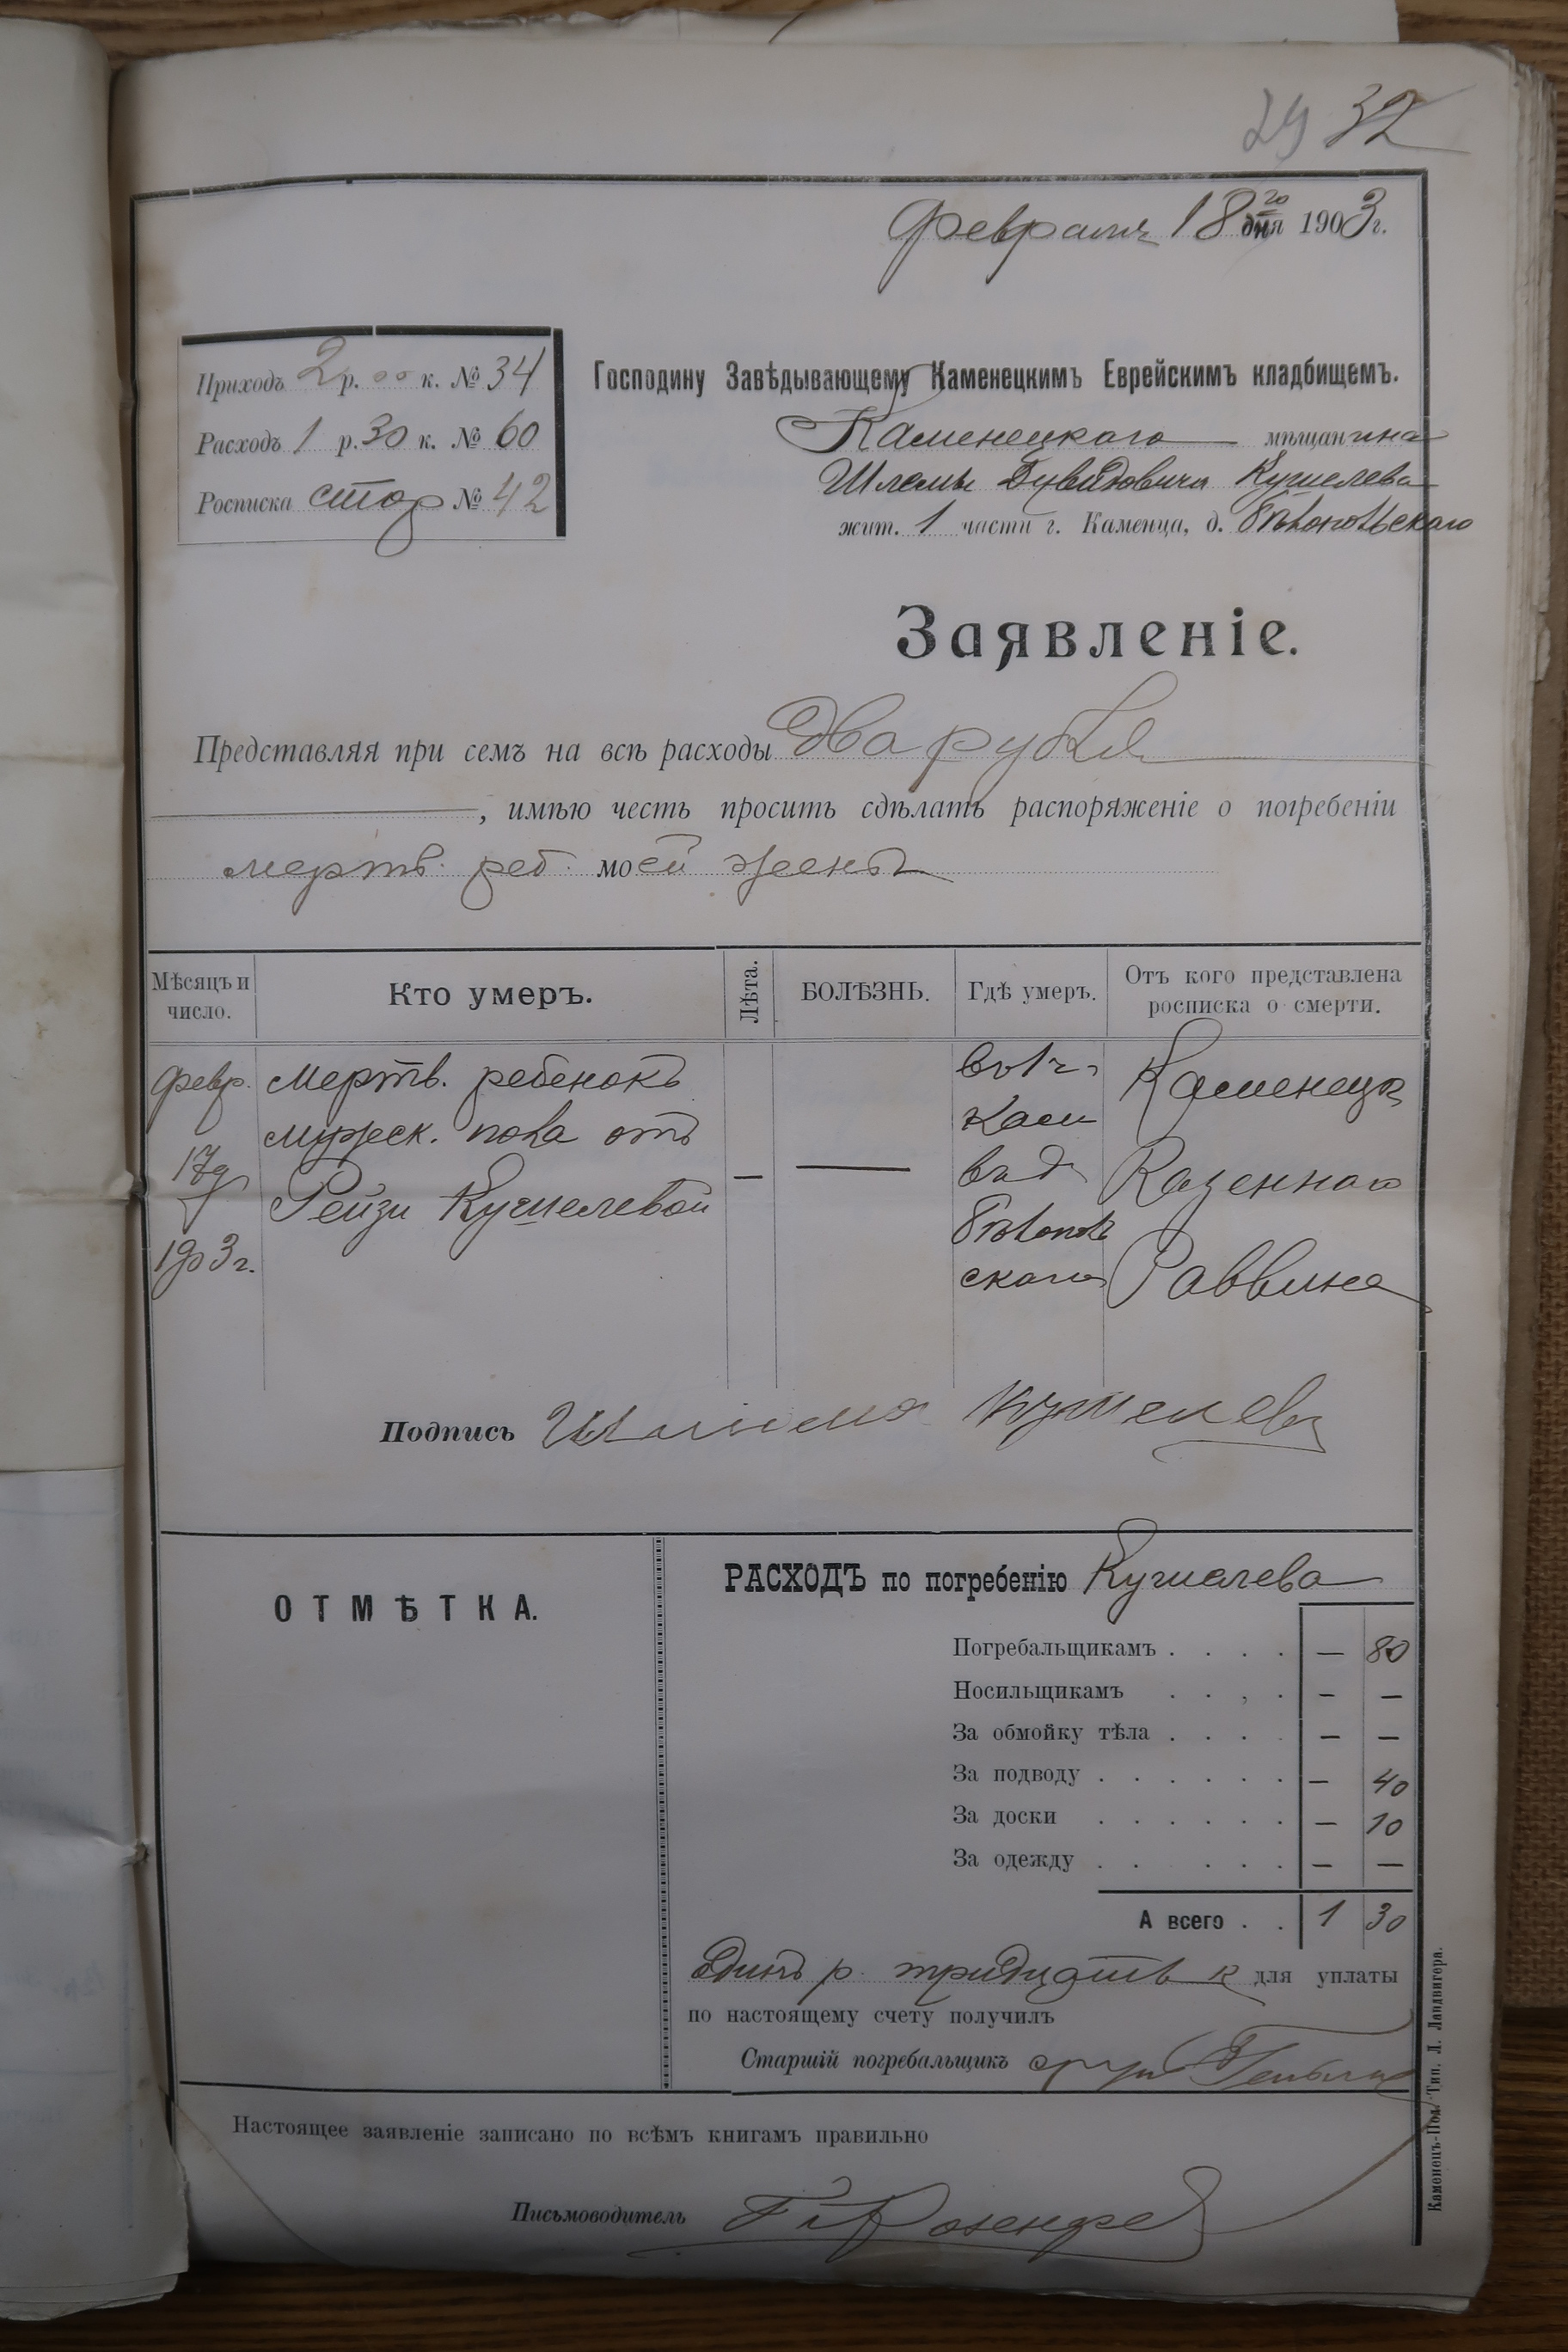 29 32
Февраля 18 20 дня 1903 г.
Приходъ 2 р. 00 к. № 34
Расходъ 1 р. 30 к. № 60
Росписка стор № 42
Господину Завѣдывающему Каменецкимъ Еврейскимъ кладбищемъ.
Каменецкаго мѣщанина
Шлемы Дувидовича Кушелева
жит. 1 части г. Каменца, д. Бѣлопольскаго
Заявленіе.
Представляя при семъ на всѣ расходы два рубля
, имѣю честь просить сдѣлать распоряженіе о погребеніи
мертв. реб. моей жены
Мѣсяцъ и число. Кто умеръ. Лѣта. БОЛѢЗНЬ. Гдѣ умеръ. Отъ кого представлена росписка о смерти.
февр. Мертв. ребенокъ Каменецк
мужеск. пола отъ Кам
17 — — въ д Казеннаго
Рейзи Кушелевой Бѣлополь
1903 г. скаго Раввина
Подпись Шлиома Кушелевъ
ОТМѢТКА.
РАСХОДЪ по погребенію Кушелева
Погребальщикамъ . . . . — 80
Носильщикамъ . . , . — —
За обмойку тѣла . . . . — —
За подводу . . . . . . — 40
За доски . . . . . . — 10
За одежду . . . . . . — —
А всего . . 1 30
Одинъ р. тридцать к для уплаты
по настоящему счету получилъ
Старшій погребальщикъ
Настоящее заявленіе записано по всѣмъ книгамъ правильно
Письмоводитель
Каменецъ-Под. Тип. Л. Ландвигера.